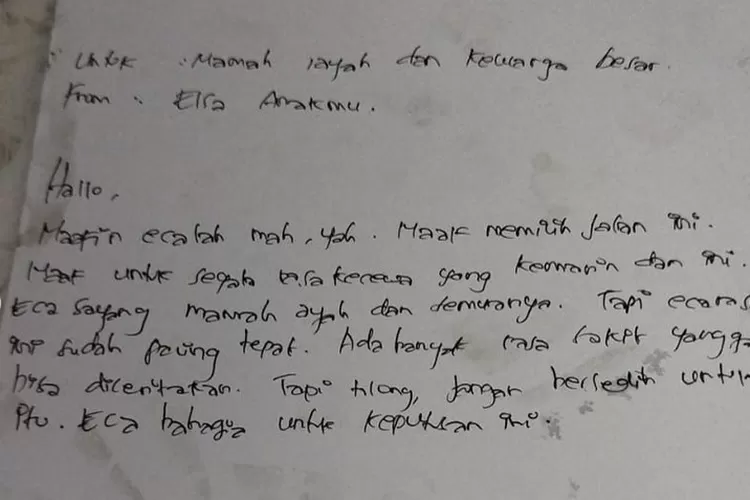 Untuk : Mamah, ayah dan keluarga besar.
From : Elsa Anakmu.
Hallo,
Maafin eca lah mah, yah. Maaf memilih jalan ini.
Maaf untuk segala rasa kecewa yang kemarin dan ini.
Eca sayang mamah ayah dan semuanya. Tapi eca ras
ini sudah paling tepat. Ada banyak rasa sakit yang ga
bisa diceritakan. Tapi tlong, jangan bersedih untuk
itu. Eca bahagia untuk keputusan ini.